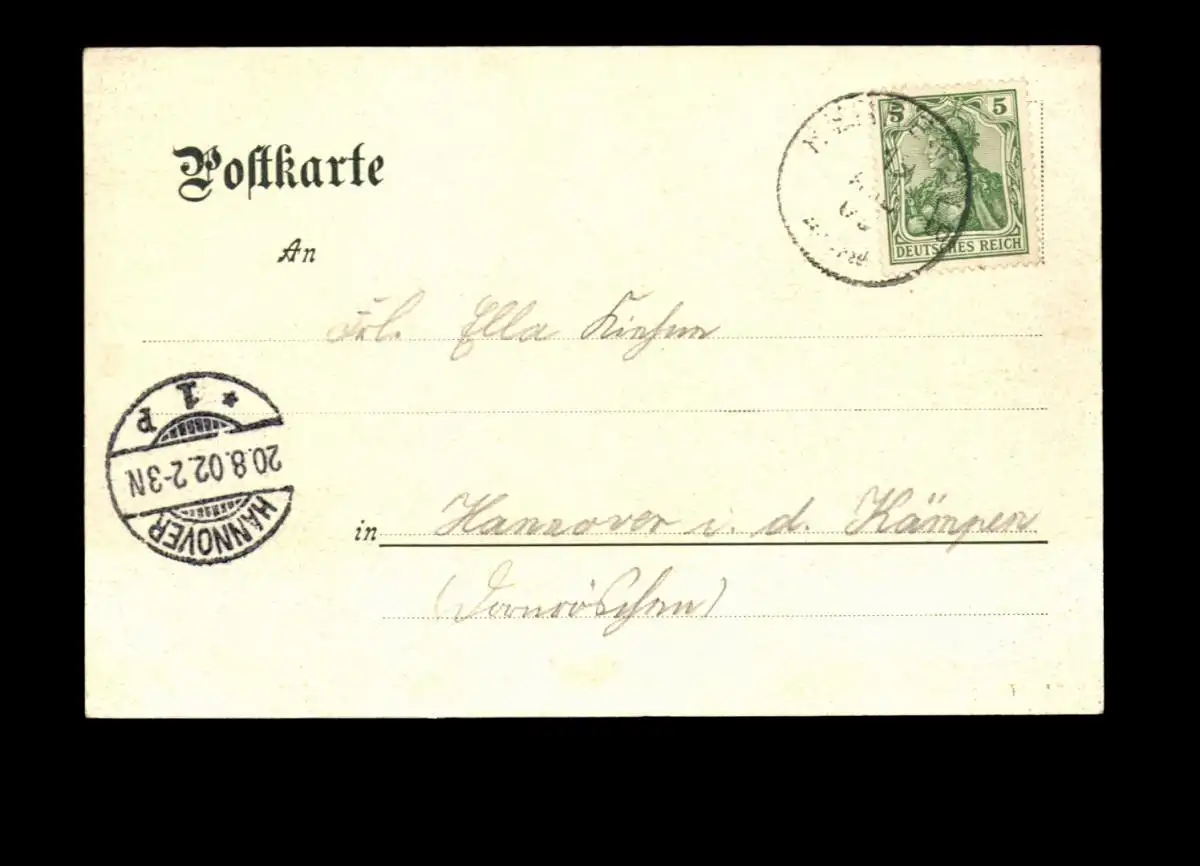 Postkarte
An
5 5
DEUTSCHES REICH
Frl. Ella
* 1 P
20.8.02.2-3N
HANNOVER
in Hannover i. d. Kämpen
(Dornröschen)